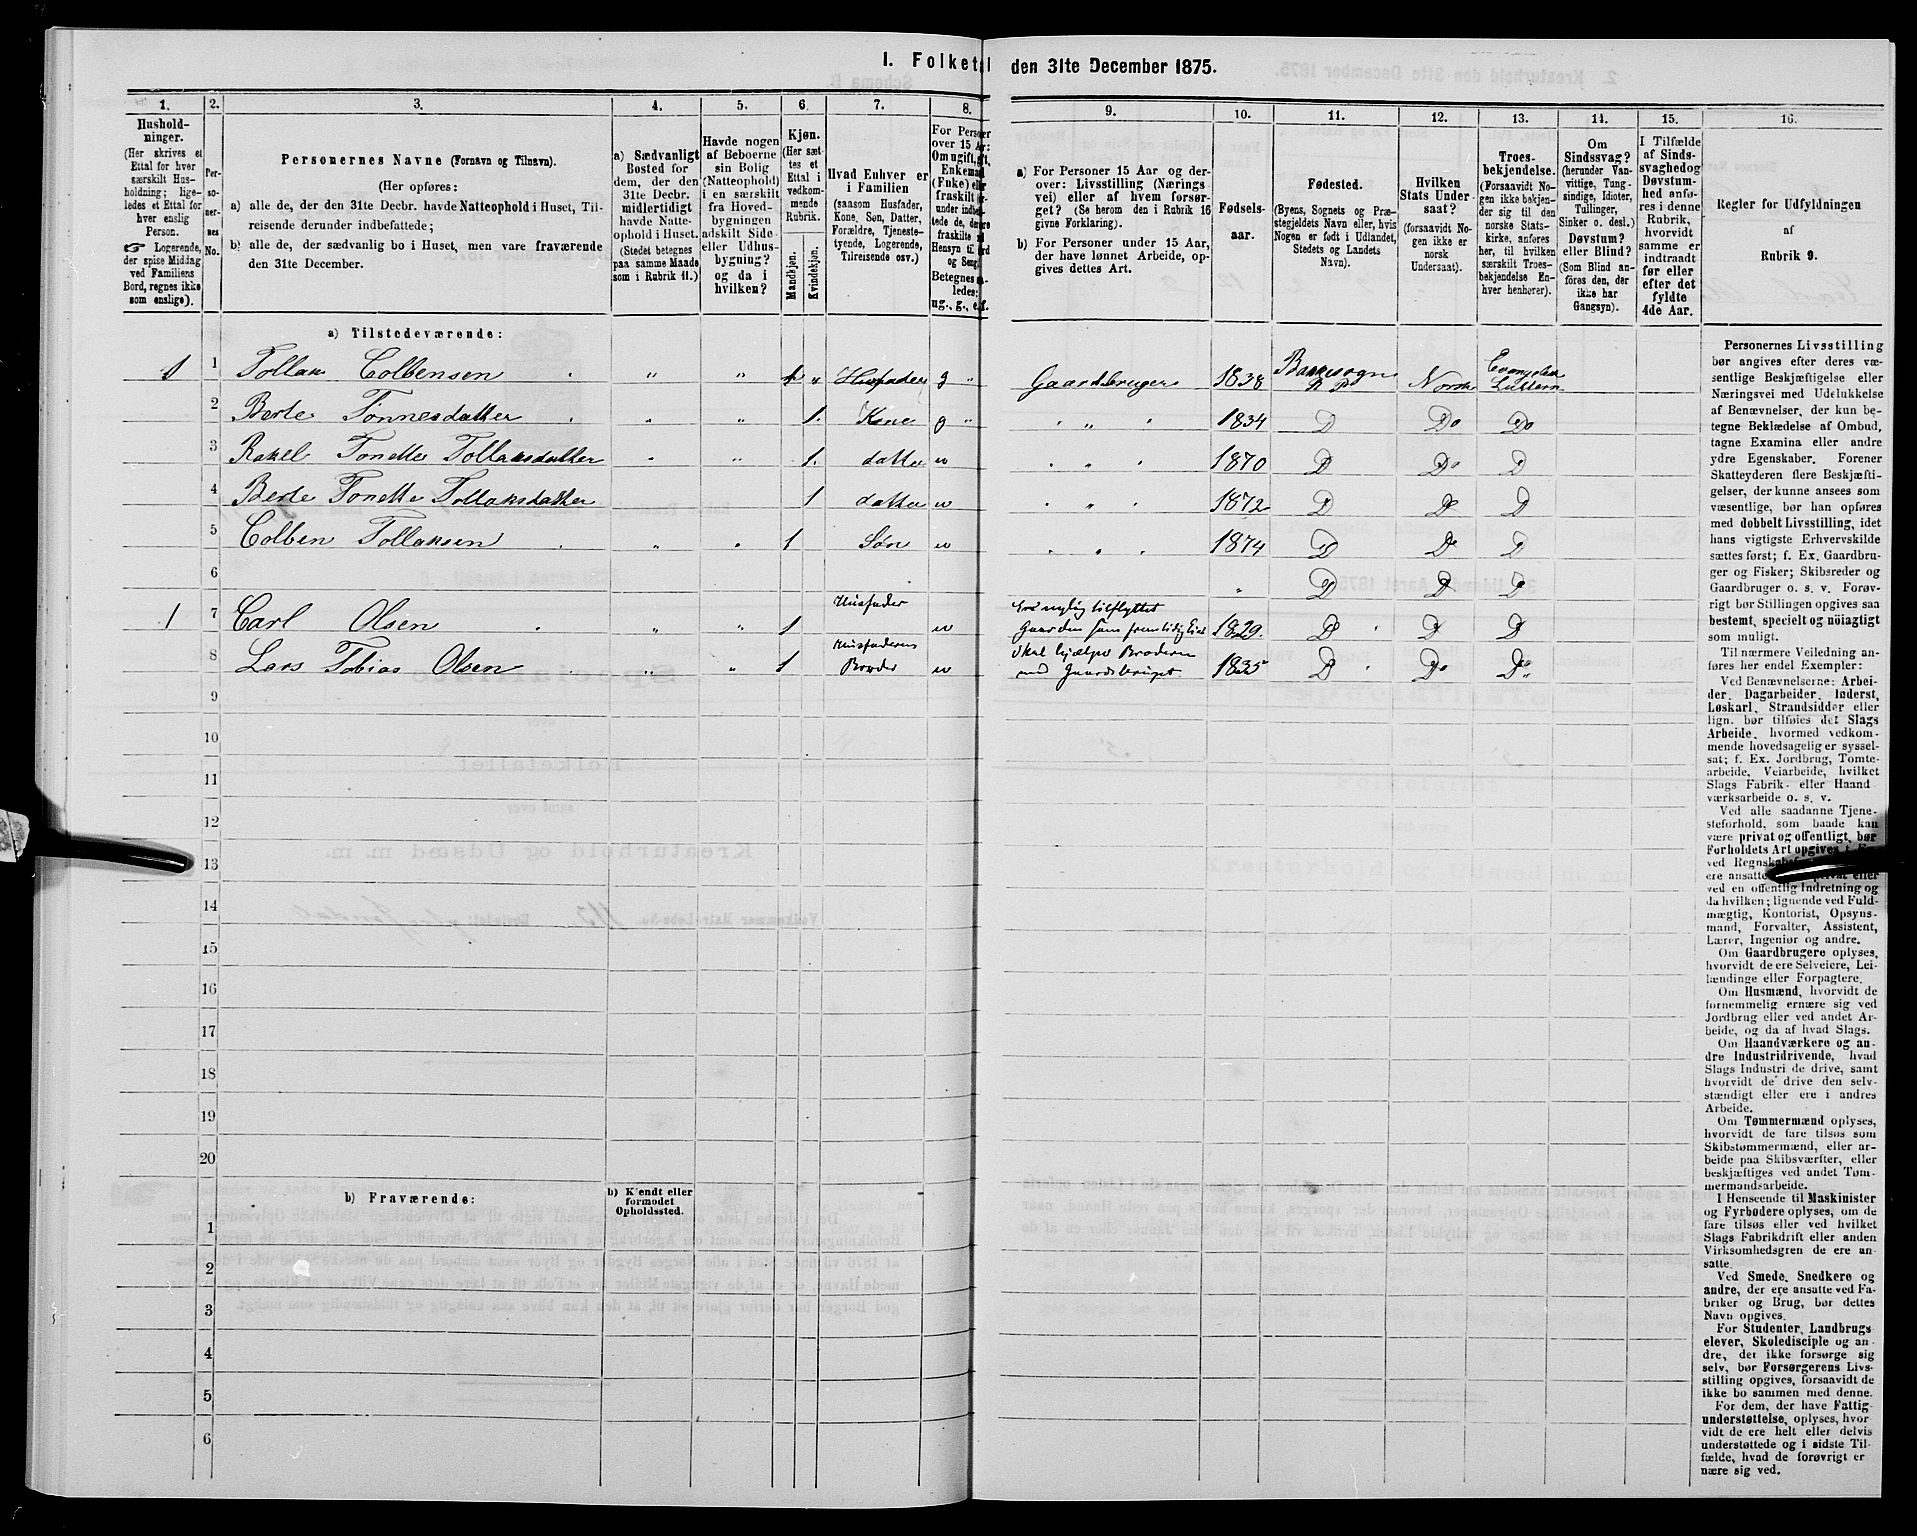 I. Folketal den 31te December 1875.
1. 2. 3. 4. 5. 6. 7. 8. 9. 10. 11. 12. 13. 14. 15. 16.
Hushold-
ninger.
(Her skrives et
Ettal for hver
særskilt Hus-
holdning; lige-
ledes et Ettal for
hver enslig
Person.
☞ Logerende,
der spise Middag
ved Familiens
Bord, regnes ikke
som enslige).
Per-
so-
ner-
nes
No.
Personernes Navne (Fornavn og Tilnavn).
(Her opføres:
a) alle de, der den 31te Decbr. havde Natteophold i Huset, Til-
reisende derunder indbefattede;
b) alle de, der sædvanlig bo i Huset, men vare fraværende
den 31te December.
a) Sædvanligt
Bosted for
dem, der den
31te Decbr.
midlertidigt
havde Natte-
ophold i Huset.
(Stedet betegnes
paa samme Maade
som i Rubrik 11.)
Havde nogen
af Beboerne
sin Bolig
(Natteophold)
i en særskilt
fra Hoved-
bygningen
adskilt Side-
eller Udhus-
bygning?
og da i
hvilken?
Kjøn.
(Her sæt-
tes et
Ettal i
vedkom-
mende
Rubrik.
Mandkjøn.
Kvindekjøn.
Hvad Enhver er
i Familien
(saasom Husfader,
Kone, Søn, Datter,
Forældre, Tjeneste-
tyende, Logerende,
Tilreisende osv.)
For Personer
over 15 Aar:
Om ugift, gift,
Enkemand
(Enke) eller
fraskilt
Betegnes
ledes:
ug., g., e., f.
a) For Personer 15 Aar og der-
over: Livsstilling (Nærings
vei) eller af hvem forsør-
get? (Se herom den i Rubrik 16
givne Forklaring).
b) For Personer under 15 Aar,
der have lønnet Arbeide, op-
gives dettes Art.
Fødsels-
aar.
Fødested.
(Byens, Sognets og Præ-
stegjeldets Navn eller, hvis
Nogen er født i Udlandet,
Stedets og Landets
Navn).
Hvilken
Stats Under-
saat?
(forsaavidt No-
gen ikke er
norsk
Undersaat).
Troes-
bekjendelse.
(Forsaavidt No-
gen ikke bekjen-
der sig til den
norske Stats-
kirke, anføres
her, til hvilken
særskilt Troes-
bekjendelse En-
hver henhører).
Om
Sindssvag?
(herunder Van-
vittige, Tung-
sindige, Idioter,
Tullinger,
Sinker o. desl.)
Døvstum?
eller Blind?
(Som Blind an-
føres den, der
ikke har
Gangsyn).
I Tilfælde
af Sinds-
svaghed og
Døvstum-
hed anfø-
res i denne
Rubrik,
hvorvidt
samme er
indtraadt
før eller
efter det
fyldte
4de Aar.
Regler for Udfyldningen
af
Rubrik 9.
a) Tilstedeværende:
1 1 Tollak Colbensen " " 1 " Husfader g " Gaardbruger 1838 Bakkesogn Norsk
2 Berte Tønnesdatter " " 1. Kone g " " 1834 D Do Do
3 Rakel Tonette Tollaksdatter " " 1. datter " 1870 D Do D
4 Berte Tonette Tollaksdatter 1 datter " 1872 D D D
5 Colben Tollaksen " " 1 Søn " 1874 D D D
6 " D D D
1 7 Carl Olsen " " 1 Husfader Er nylig tilflyttet
Gaarden som fremtidig 1829. D D D
8 Lars Tobias Olsen " " 1 Husfaderens
Broder Skal hjælpe Broderen
med Gaardsbruget. 1835 D Do Do
9
10
11
12
13
14
15
16
17
18
19
20
b) Fraværende:
b) Kjendt eller
formodet
Opholdssted.
1
2
3
4
5
6
Personernes Livsstilling
bør angives efter deres væ-
sentlige Beskjæftigelse eller
Næringsvei med Udelukkelse
af Benævnelser, der kun be-
tegne Beklædelse af Ombud,
tagne Examina eller andre
ydre Egenskaber. Forener
Skatteyderen flere Beskjæfti-
gelser, der kunne ansees som
væsentlige, bør han opføres
med dobbelt Livsstilling, idet
hans vigtigste Erhvervskilde
sættes først; f. Ex. Gaardbru-
ger og Fisker; Skibsreder og
Gaardbruger o. s. v. Forøv-
rigt bør Stillingen opgives saa
bestemt, specielt og nöiagtigt
som muligt.
Til nærmere Veiledning an-
føres her endel Exempler:
Ved Benævnelserne: Arbei-
der, Dagarbeider, Inderst,
Løskarl, Strandsidder eller
lign. bør tilføies det Slags
Arbeide, hvormed vedkom-
mende hovedsagelig er syssel-
sat; f. Ex. Jordbrug, Tomte-
arbeide, Veiarbeide, hvilket
Slags Fabrik- eller Haand
værksarbeide o. s. v.
Ved alle saadanne Tjene-
steforhold, som baade kan
være privat og offentligt, bør
Forholdets Art opgives,
ved
ere ansatte privat eller
ved en offentlig Indretning og
da hvilken; lignende ved Fuld-
mægtig, Kontorist, Opsyns-
mand, Forvalter, Assistent,
Lærer, Ingeniør og andre.
Om Gaardbrugere oplyses,
hvorvidt de ere Selveiere, Lei-
lændinge eller Forpagtere.
Om Husmænd, hvorvidt de
fornemmelig ernære sig ved
Jordbrug eller ved andet Ar-
beide, og da af hvad Slags.
Om Haandværkere og an-
dre Industridrivende, hvad
Slags Industri de drive, samt
hvorvidt de drive den selv-
stændigt eller ere i andres
Arbeide.
Om Tømmermænd oplyses,
hvorvidt de fare tilsøs som
Skibstømmermænd, eller ar-
beide paa Skibsværfter, eller
beskjæftiges ved andet Tøm-
mermandsarbeide.
I Henseende til Maskinister
og Fyrbødere oplyses, om de
fare tilsøs eller ved hvilket
Slags Fabrikdrift eller anden
Virksomhedsgren de ere an-
satte.
Ved Smede, Snedkere og
andre, der ere ansatte ved Fa-
briker og Brug, bør dettes
Navn opgives.
For Studenter, Landbrugs
elever, Skoledisciple og an-
dre, der ikke forsørge sig
selv, bør Forsørgerens Livs-
stilling opgives, forsaavidt de
ikke bo sammen med denne.
For dem, der have Fattig
understøttelse, oplyses, hvor
vidt de ere helt eller delvis
understøttede og i sidste Til-
fælde, hvad de forøvrigt er
nære sig ved.